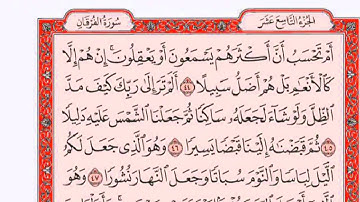 سُورَةُ الفُرْقَانِ
الجُزْءُ التَّاسِعَ عَشَرَ
أَمْ تَحْسَبُ أَنَّ أَكْثَرَهُمْ يَسْمَعُونَ أَوْ يَعْقِلُونَ ۚ إِنْ هُمْ إِلَّا
كَالْأَنْعَٰمِ بَلْ هُمْ أَضَلُّ سَبِيلًا ٤٤ أَلَمْ تَرَ إِلَىٰ رَبِّكَ كَيْفَ مَدَّ
الظِّلَّ وَلَوْ شَاءَ لَجَعَلَهُ سَاكِنًا ثُمَّ جَعَلْنَا الشَّمْسَ عَلَيْهِ دَلِيلًا
٤٥ ثُمَّ قَبَضْنَٰهُ إِلَيْنَا قَبْضًا يَسِيرًا ٤٦ وَهُوَ الَّذِي جَعَلَ لَكُمُ
اللَّيْلَ لِبَاسًا وَالنَّوْمَ سُبَاتًا وَجَعَلَ النَّهَارَ نُشُورًا ٤٧ وَهُوَ